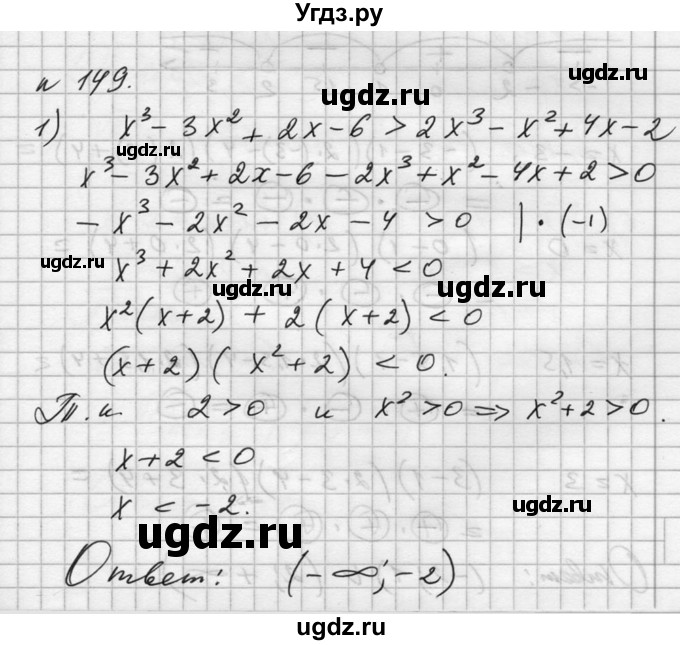 Угдз.ру
ugdz.ru
№ 149.
ugdz.ru
1) x³ - 3x² + 2x - 6 > 2x³ - x² + 4x - 2
ugdz.ru
x³ - 3x² + 2x - 6 - 2x³ + x² - 4x + 2 > 0
-x³ - 2x² - 2x - 4 > 0 | · (-1)
ugdz.ru
x³ + 2x² + 2x + 4 < 0
ugdz.ru
ugdz.ru
x²(x+2) + 2(x+2) < 0
(x+2)(x²+2) < 0.
Т.к 2 > 0 и x² > 0 => x²+2 > 0.
x + 2 < 0
x < -2.
ugdz.ru
ugdz.ru
Ответ: (-∞; -2)
ugdz.ru